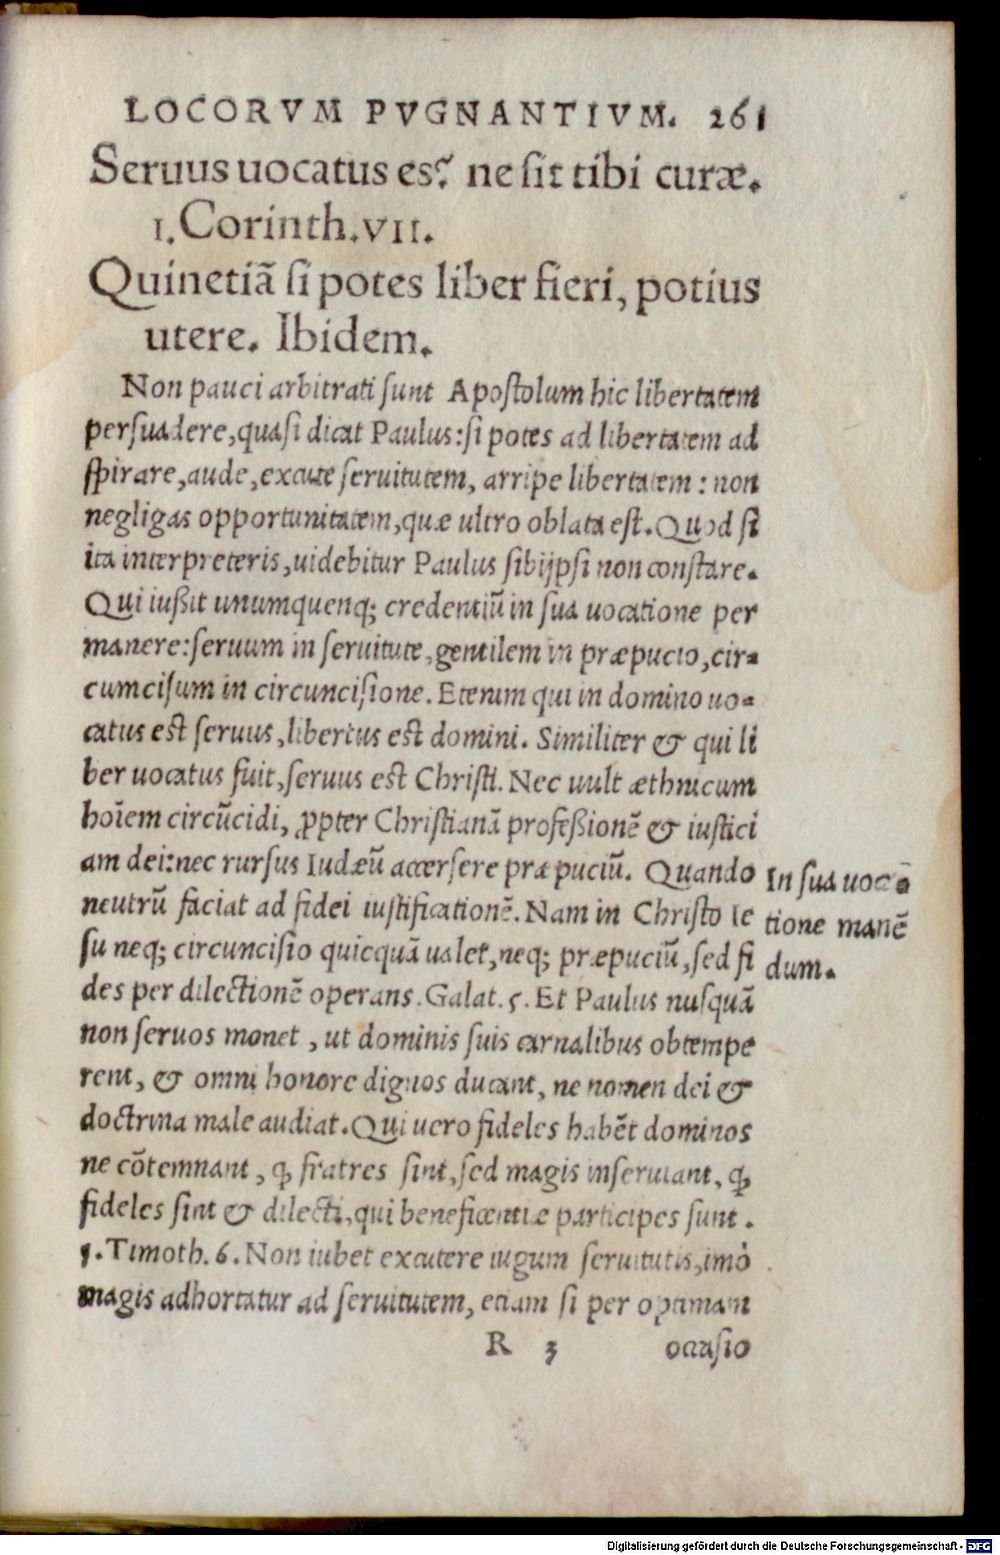 LOCORVM PVGNANTIVM. 261
Seruus uocatus es? ne sit tibi curæ.
1. Corinth. VII.
Quinetiã si potes liber fieri, potius
utere. Ibidem.
Non pauci arbitrati sunt Apostolum hic libertatem
persuadere, quasi dicat Paulus: si potes ad libertatem ad
spirare, aude, excute seruitutem, arripe libertatem: non
negligas opportunitatem, quæ ultro oblata est. Quod si
ita interpreteris, uidebitur Paulus sibijpsi non constare.
Qui iußit unumquenq; credentiũ in sua uocatione per
manere: seruum in seruitute, gentilem in præpucio, cir-
cumcisum in circuncisione. Etenim qui in domino uo-
catus est seruus, libertus est domini. Similiter & qui li
ber uocatus fuit, seruus est Christi. Nec uult æthnicum
hoĩem circũcidi, ꝓpter Christianã profeßionẽ & iustici
am dei: nec rursus Iudæũ accersere præpuciũ. Quando
neutrũ faciat ad fidei iustificationẽ. Nam in Christo Ie
su neq; circuncisio quicquã ualet, neq; præpuciũ, sed fi
des per dilectionẽ operans. Galat. 5. Et Paulus nusquã
non seruos monet, ut dominis suis carnalibus obtempe
rent, & omni honore dignos ducant, ne nomen dei &
doctrina male audiat. Qui uero fideles habẽt dominos
ne cõtemnant, ꝙ fratres sint, sed magis inseruiant, ꝙ
fideles sint & dilecti, qui beneficentiæ participes sunt.
1. Timoth. 6. Non iubet excutere iugum seruitutis, imò
magis adhortatur ad seruitutem, etiam si per optimam
R 3 occasio
In sua uoca-
tione manẽ
dum.
Digitalisierung gefördert durch die Deutsche Forschungsgemeinschaft - DFG